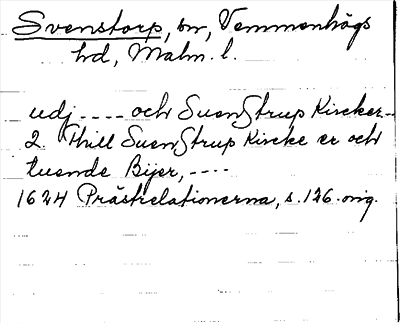 Svenstorp, sn, Vemmenhögs
hd, Malm. l.
udj ---- och SuenStrup Kircker--
2. Thill SuenStrup Kircke er och
tuende Bijer, ----
1624 Prästrelationerna, s. 126. orig.